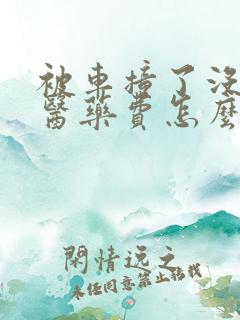 被車撞了沒
醫藥費怎麼
閑情逸之
未经同意禁止转载